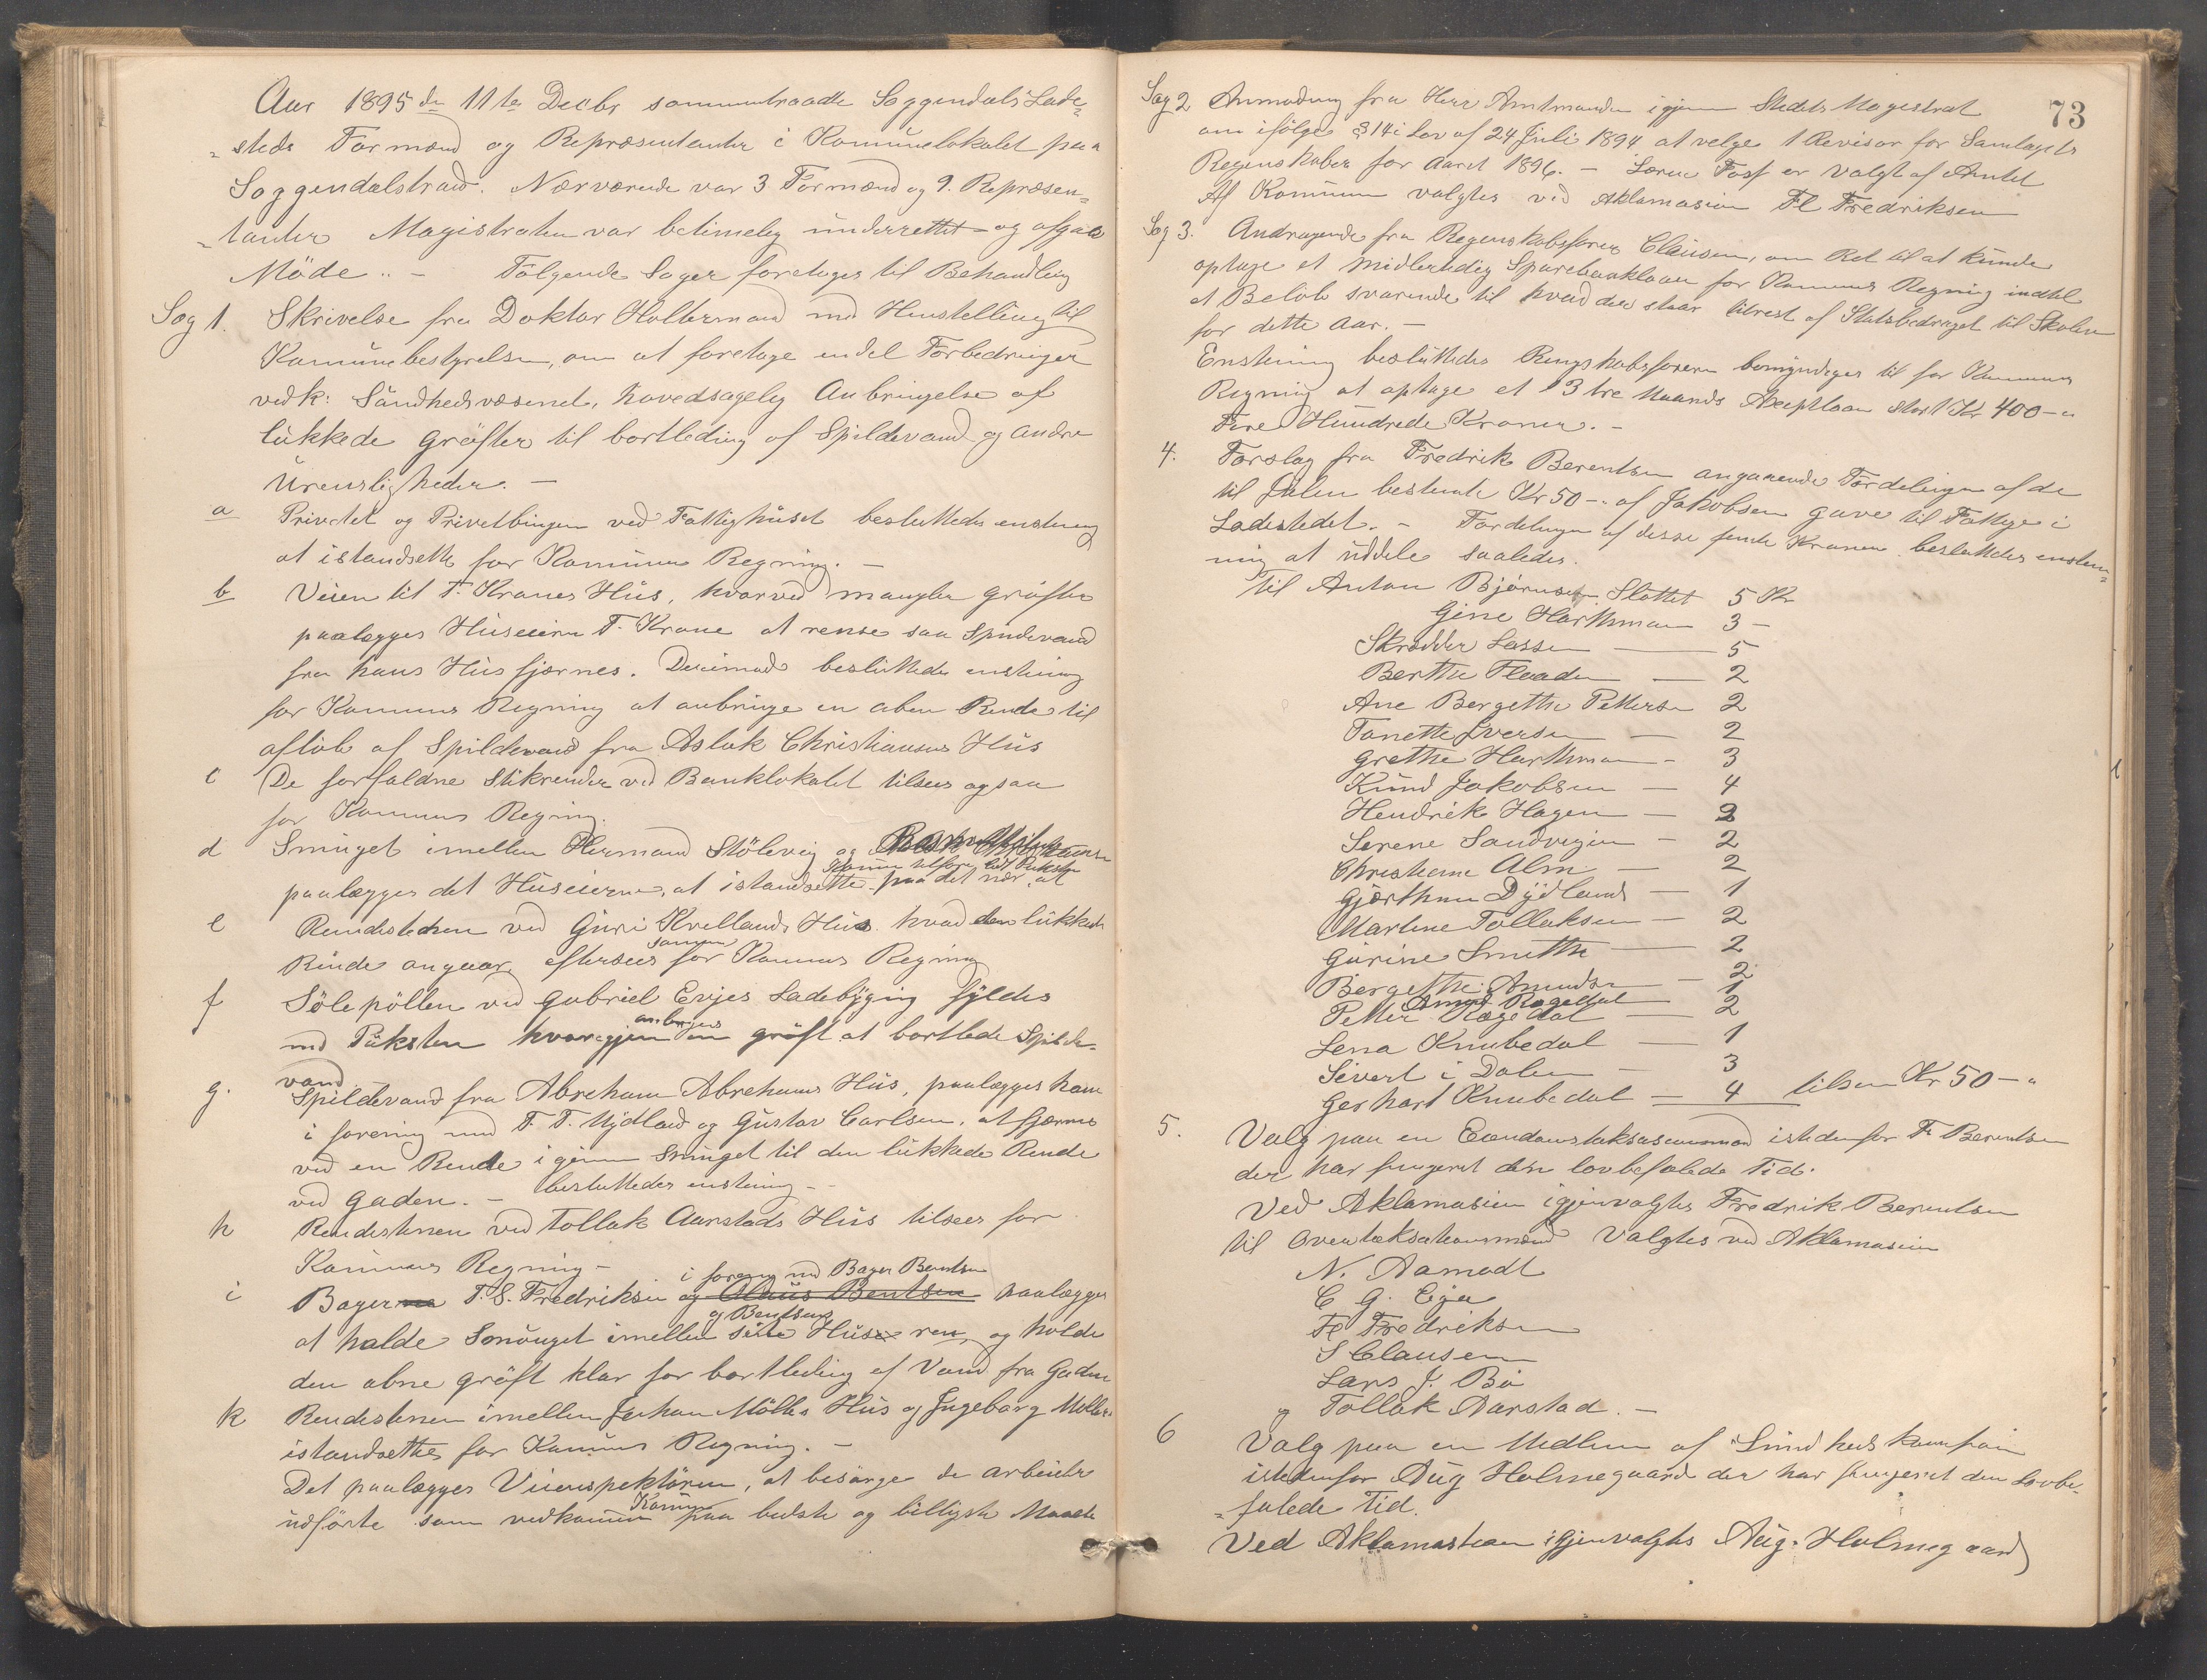 Aar 1895 dn 11te Decbr sammentraadte Soggendals Lade-
steds Formænd og Repræsentanter i Komunelokalet paa
Soggendalstrand. Nærværende var 3 Formænd og 9. Repræsen-
tanter Magistraten var betimelig underrettet og afgav
Möde.. - Fölgende Sager foretoges til Behandling
Sag 1. Skrivelse fra Doktor med Henstelling til
Komunebestyrelsen, om at foretage endel Forbedringer
vedk: Sundhedsvæsenet, hovedsagelig Anbringelse af
lukkede gröfter til bortleding af Spildevand og andre
Urensligheder. -
a Privetet og Privetbingen ved Fattighuset besluttedes enstemig
at istandsætte for Komunens Regning. -
b Veien til T. Kranes Hus, hvorved mangler gröfter
paalægges Huseieren T. Krane at rense saa Spildevand
fra hans Hus fjærnes. Derimod besluttedes enstemig
for Komunens Regning at anbringe en aben Rende til
aflöb af Spildevand fra Aslak Christiansens Hus
c De forfaldne Stikrender ved Banklokalet tilsees ogsaa
for Komunens Regning.
d Smuget imellem Hermand Stölevig og
Komunen tilfører Puksten
paalægges det Huseierne, at istandsætte paa det nær, at
e Rendestenen ved Guri Kvellands Hus hvad den lukkede
Rende angaar, eftersees samme for Komunens Regning
f Sölepöllen ved Gabriel Evjes Ladebygning fyldes
med Puksten hvorigjen anbringes en gröft at bortlede Spilde-
vand.
g. Spildevand fra Abraham Abrahams Hus, paalægges ham
i forening med T. T. Mydland og Gustav Carlsen, at fjærne
ved en Rende igjenem Smuget til den lukkede Rende
ved gaden. - besluttedes enstemig -
h Rendestenen ved Tollak Aarstads Hus tilsees for
Komunens Regning -
i forening med Bager Bentsen
i Bagerne T. S. Fredriksen og Claus Bentsen paalægges
og Bentsens
at holde Smuget imellem sine Huse ren, og holde
den abne gröft klar for bortleding af Vand fra Gaden
k Rendestenen imellem Johan Möllers Hus og Ingeborg Möllers
istandsættes for Komunens Regning. -
Det paalægges Veiinspektören, at besörge de arbeider
udförte som vedkommer Komunen paa bedste og billigste Maade
73
Sag 2 Anmodning fra Herr Amtmanden igjenem Stedets Magistrat
om ifölge § 14 i Lov af 24 Juli 1894 at velge 1 Revisor for Samlagets
Regenskaber for Aaret 1896. - Lærer Foss er valgt af Amtet
Af Komunen valgtes ved Aklamasion Fl Fredriksen
Sag 3. Andragende fra Regenskabsförer Clausen, om Ret til at kunde
optage et midlertidig Sparebanklaan for Komunens Regning indtil
et Belöb svarende til hvad der staar tilrest af Statsbedraget til Skolen
for dette Aar. -
Enstemig besluttedes Rengskabsföreren bemyndiges til for Komunens
Regning at optage et 3 tre Maaneds Akceptlaan stort Kr 400-"
Fire Hundrede Kroner. -
4. Forslag fra Fredrik Berentsen angaaende Fordelingen af de
til Julen bestemte Kr 50-" af Jakobsens gave til Fattige i
Ladestedet. - Fordelingen af disse femti Kroner besluttedes enstem-
mig at uddele saaledes.
Til Anton Björnsen Slottet 5 Kr
Gine Harthman 3 -
Skrædder Lassen — 5
Berthe Floaden — 2
Ane Bergethe Pettersen 2
Tanette Iversen — 2
Grethe Harthman - 3
Knud Jakobsen — 4
Hendrik Hagen — 2
Serene Sandvigen — 2
Christiane Alm — 2
Gjærthrud Dydland — 1
Martine Tollaksen — 2
Gurine Smith — 2
Bergethe Amundsen — 2
Amund Rægedal 1
Petter Rægedal — 2
Lena Knubedal — 1
Sivert i Dalen — 3
Gerhart Knubedal — 4 tilsamen Kr 50-"
5. Valg paa en Eiendomstaksasionsmand istedenfor F. Berentsen
der har fungeret den lovbefalede Tid.
Ved Aklamasion igjenvalgtes Fredrik Berentsen
til Overtaksationsmænd valgtes ved Aklamasion
N. Aamodt
C G. Eger
Fl Fredriksen
S Clausen
Lars J. Bö
og Tollak Aarstad. -
6 Valg paa en Medlem af Sundhedskommision
istedenfor Aug Holmegaard der har fungeret den Lovbe-
falede Tid.
Ved Aklamastion igjenvalgtes Aug. Holmegaard